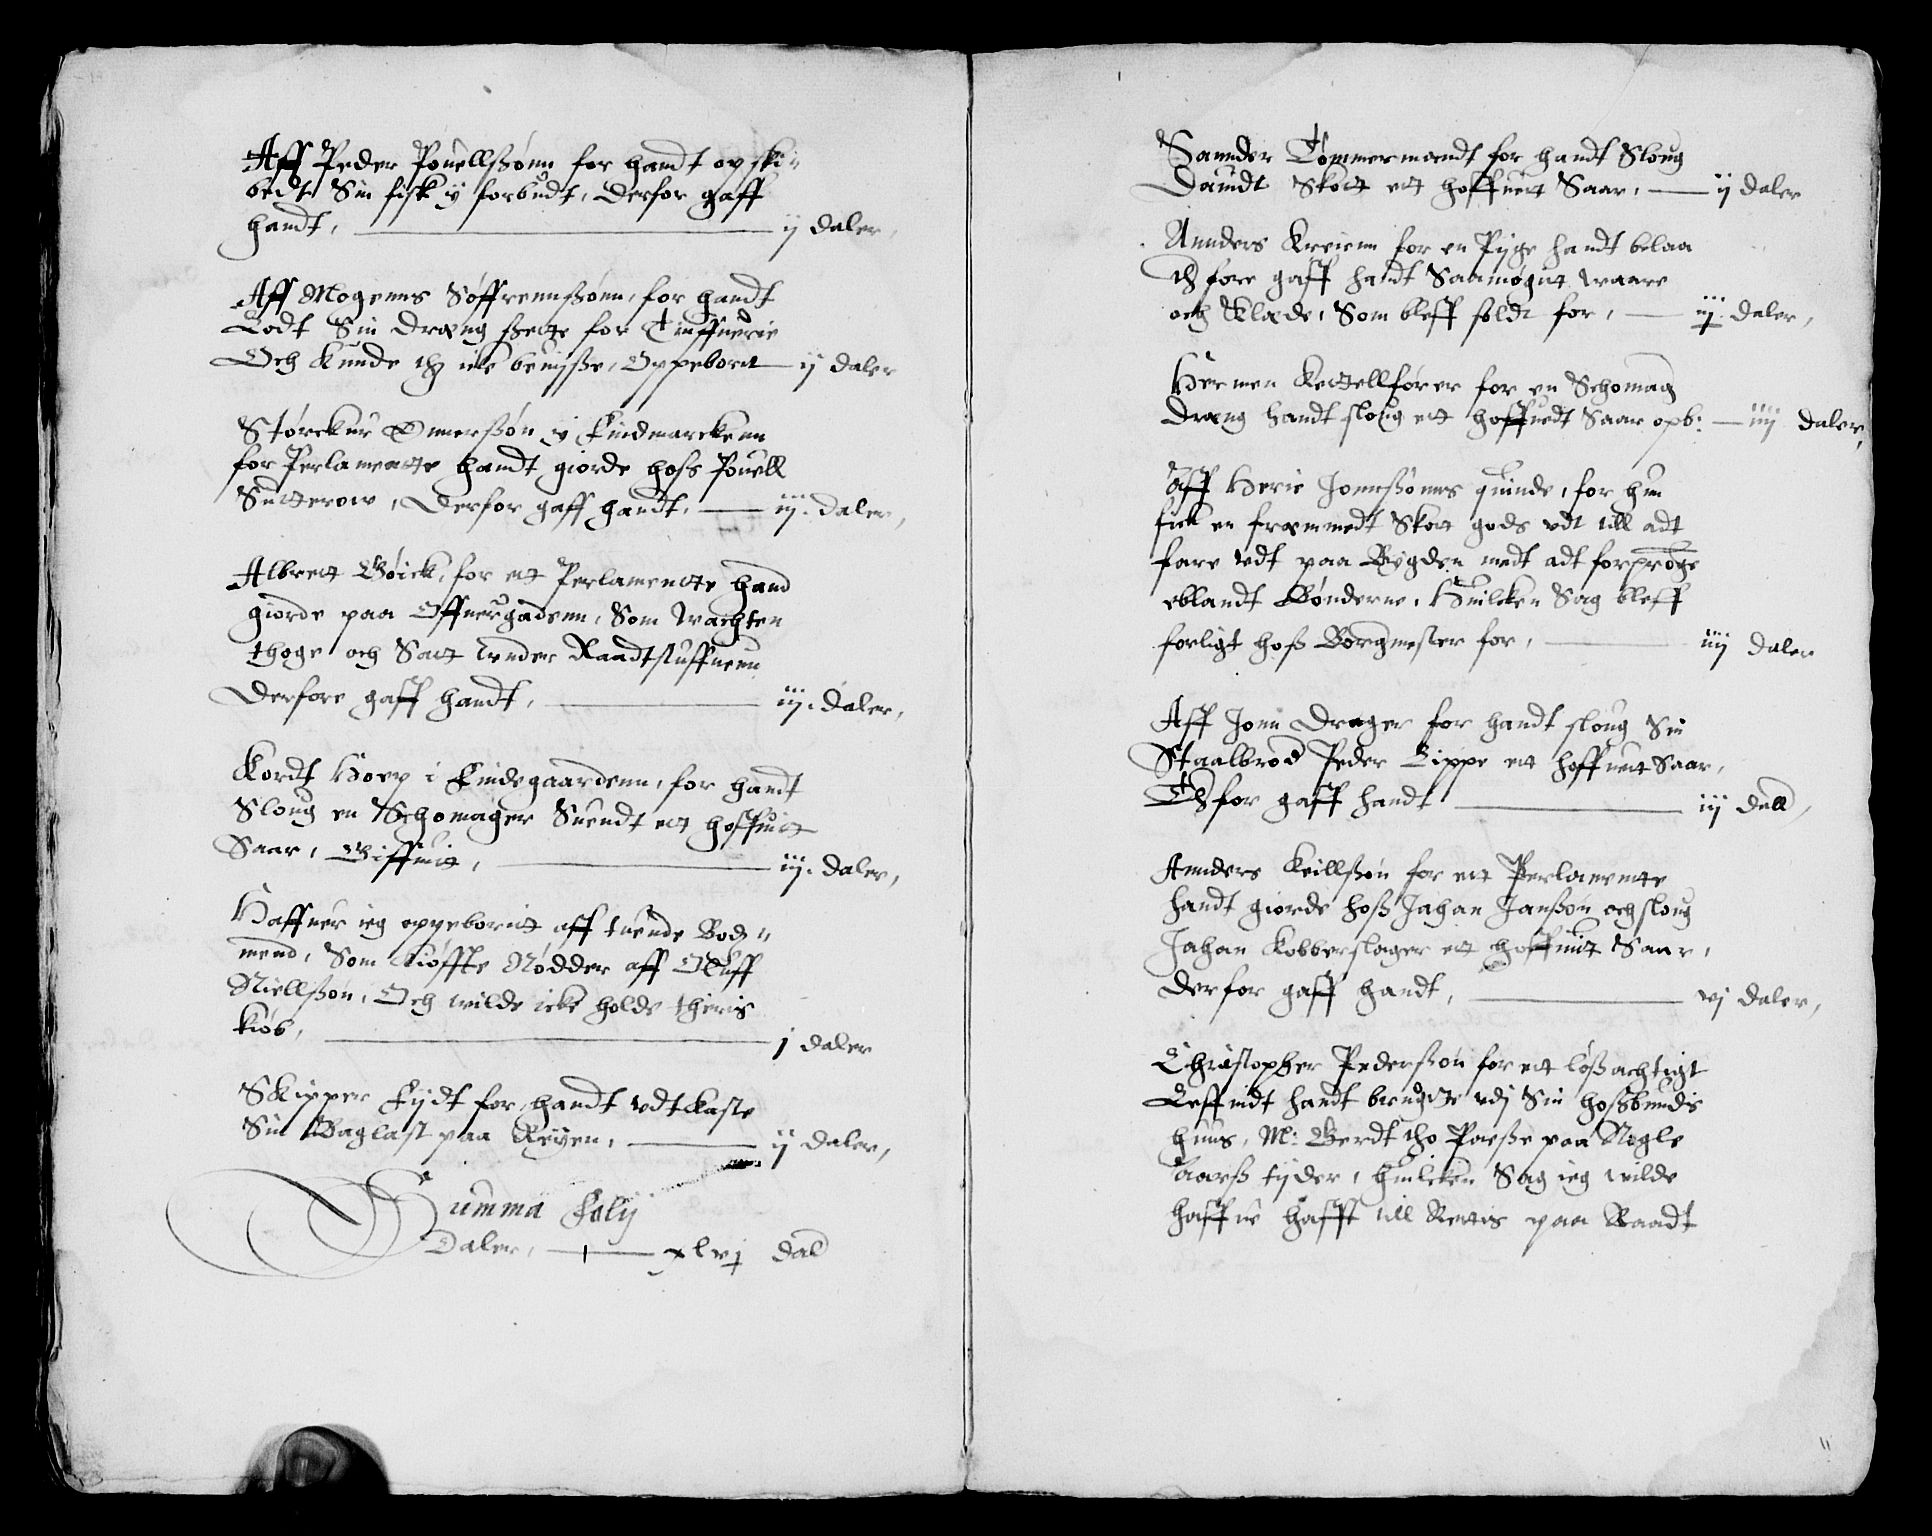 Aff Peder Pouellßønn for handt opski-
bedt Sin fisk y forbudt, Derfor gaff
handt, ij daler,
Aff Mogenns Søffrennßønn, for handt
Lodt Sin dreng sette for Tiuffuerie
Och kunde th icke beuisse, Oppebort ij daler
Størckur Onnerßøn y Findmarckenn
for Perlamentte handt giorde hoss Pouell
Sutterow, Derfor gaff handt, iij. daler,
Albrett Bøick, for ett Perlamentte hand
giorde paa Offuergadenn, Som wachten
thoge och Satt vnder Raadtstuffuenn
Derfore gaff handt, iij. daler,
Kordt Hoep i Findegaardenn, for handt
Sloug en Schomager Suendt ett hoffuitt
Saar, Giffuit, iij. daler,
Haffuer ieg oppeboritt aff tuende Bod-
mend, Som kiøffte Nødder aff Oluff
Niellßøn, Och wilde icke holde theris
kiøb, j daler
Skipper Fijdt for handt vdtkaste
Sin Baglast paa Reyen, ij daler,
Summa Folij
Daler, xlvj dal
Sannder Tømmermandt for handt Sloug
Dauidt Skott ett hoffuett Saar, ij daler
Annders Kreienn for en Pijge handt belaa
th fore gaff handt Saamøgitt waare
och Klæde, Som bleff soldt for, iij. daler,
Hermen Kettellfører for en Schomag
dreng handt sloug ett hoffuedt Saar opb: iiij daler,
Aff Herie Jonnßønns quinde, for hun
fick en fremmedt Skott gods vdt till adt
fare vdt paa Bygden medt adt forprange
eblandt Bønderne, Huilcken Sag bleff
forligt hoß Borgmester for, iiij daler
Aff Jonn Drager for handt sloug Sin
Staalbrod Peder Lippe ett hoffuett Saar,
Th for gaff handt iij dall,
Annders Keillßøn for ett Perlamentte
handt giorde hoß Jahan Janßøn och sloug
Jahan Kobberslager ett hoffuitt Saar,
Derfor gaff handt, vj daler,
Christopher Pederßøn for ett løßachtigt
Leffnidt handt brugte vdj Sin hoßbundis
huus, M: Gerdt tho Poeße paa Nogle
aarß tijder, huilcken Sag ieg wilde
haffue hafft till Rettis paa Raadt